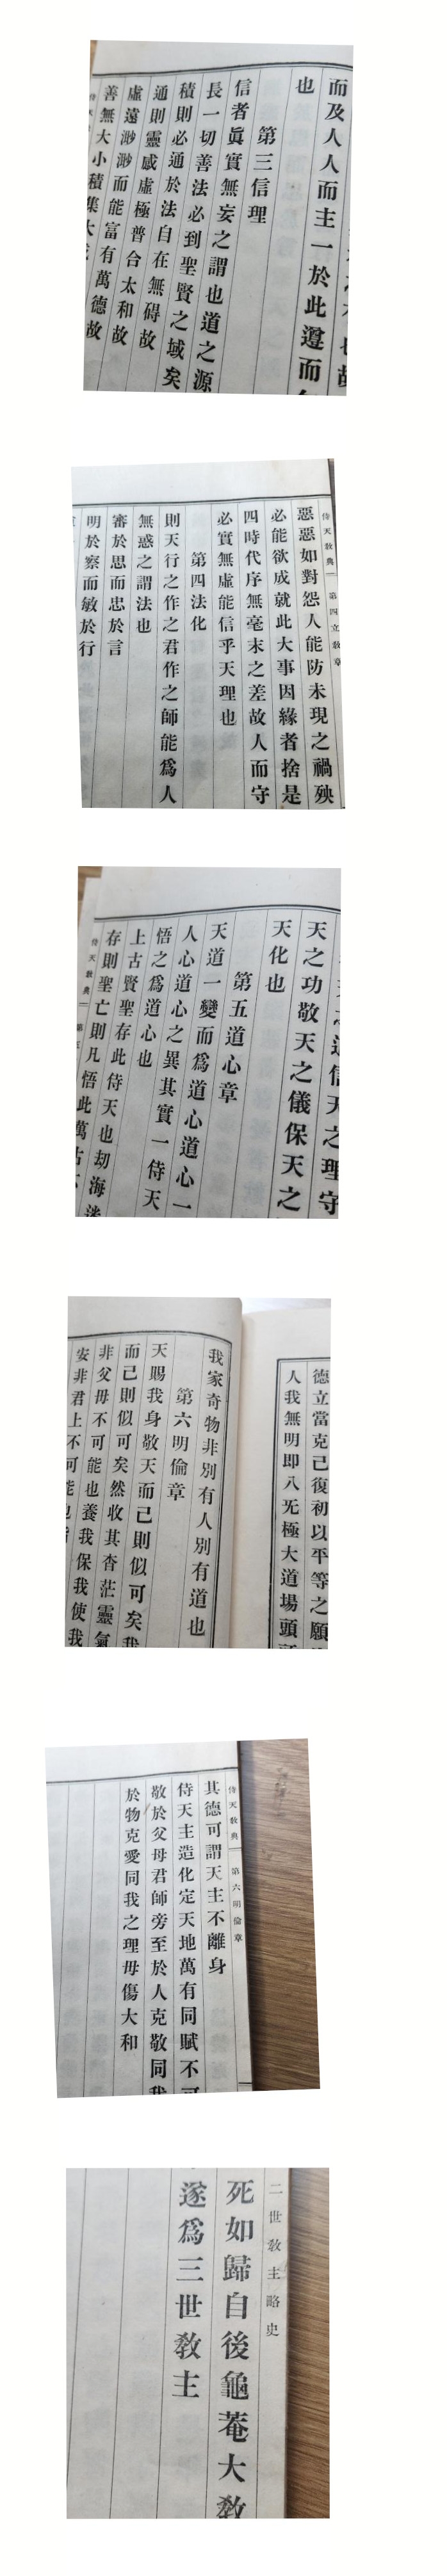 而及人人而主一於此遵而
也
第三信理
信者眞實無妄之謂也道之源
長一切善法必到聖賢之域矣
積則必通於法自在無碍故
通則靈感虛極普合太和故
虛遠渺渺而能富有萬德故
善無大小積集大
侍天敎典 第四立敎章
惡惡如對怨人能防未現之禍殃
必能欲成就此大事因緣者捨是
四時代序無毫末之差故人而守
必實無虛能信乎天理也
第四法化
則天行之作之君作之師能爲人
無惑之謂法也
審於思而忠於言
明於察而敏於行
信天之理守
天之功敬天之儀保天之
天化也
第五道心章
天道一變而爲道心道心一
人心道心之異其實一侍天
悟之爲道心也
上古賢聖存此侍天也劫海迷
存則聖亡則凡悟此萬古
侍天敎典
德立當克己復初以平等之願
人我無明即入旡極大道場頭
我家奇物非別有人別有道也
第六明倫章
天賜我身敬天而己則似可矣我
而己則似可矣然收其杳茫靈氣
非父母不可能也養我保我使我
安非君上不可能也
侍天敎典 第六明倫章
其德可謂天主不離身
侍天主造化定天地萬有同賦不可
敬於父母君師旁至於人克敬同我
於物克愛同我之理毋傷大和
二世敎主略史
死如歸自後龜菴大敎
遂爲三世敎主